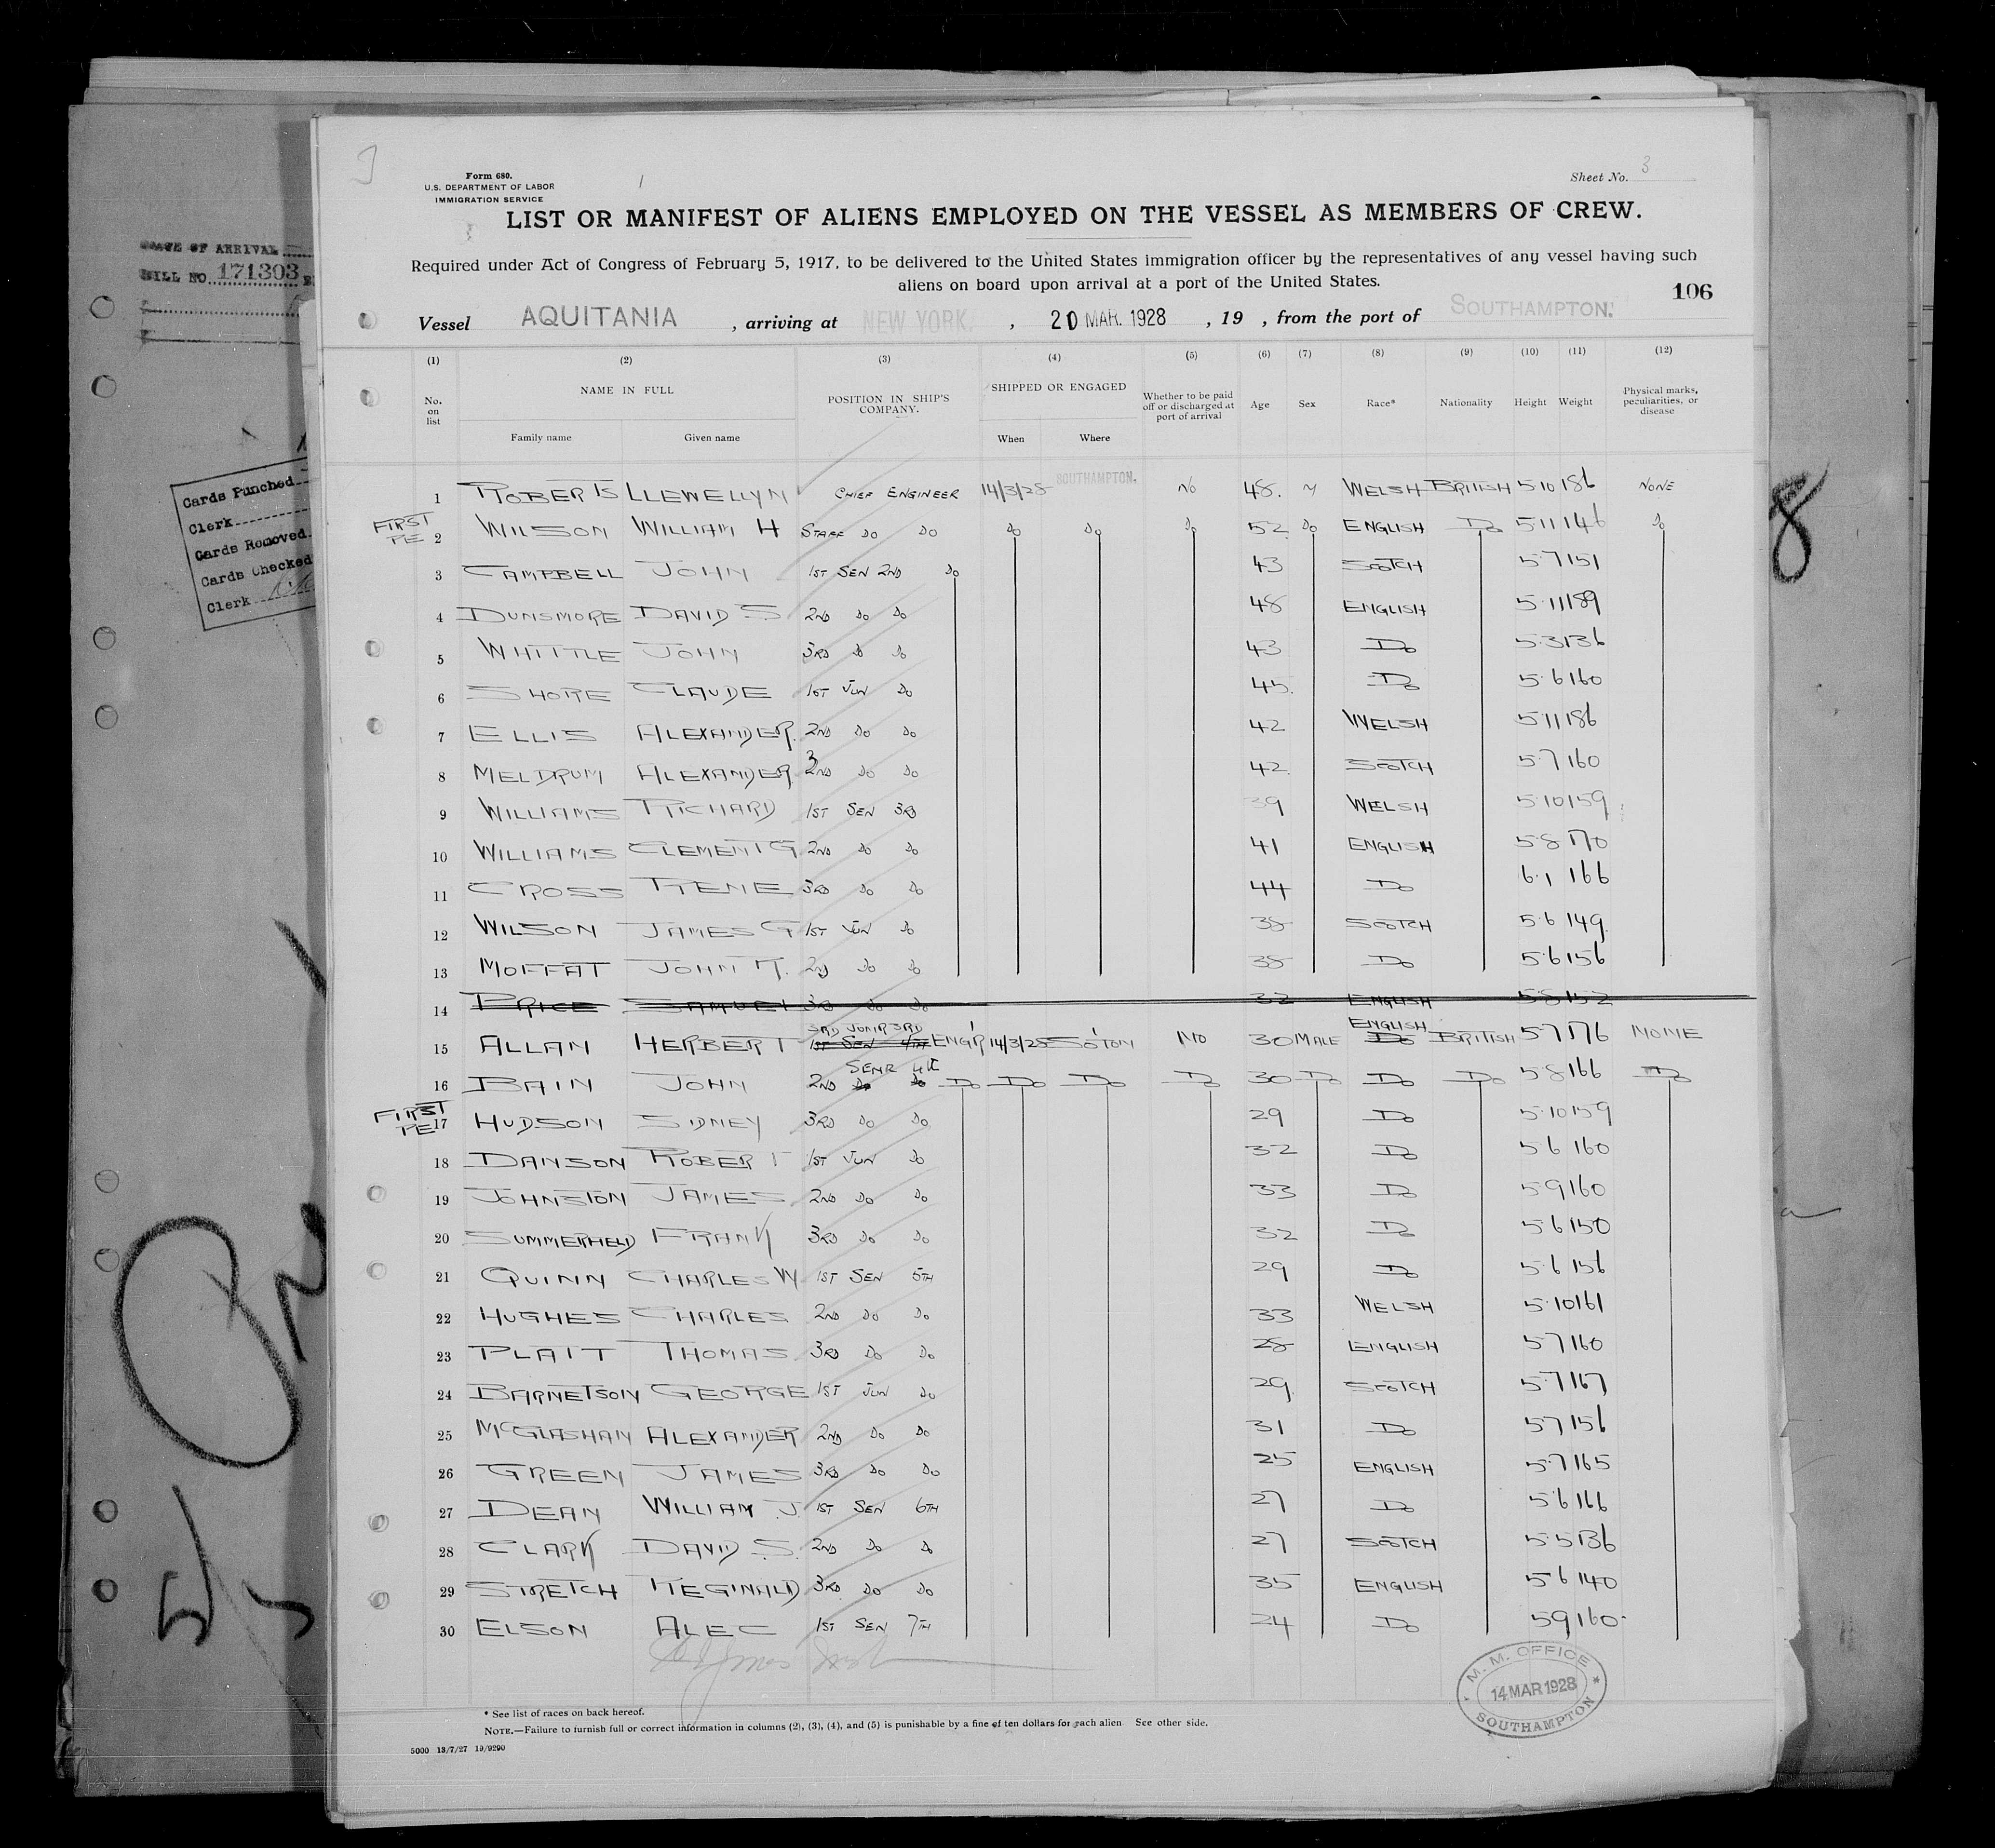 Form 680.
U.S. DEPARTMENT OF LABOR
IMMIGRATION SERVICE
Sheet No. 3
LIST OR MANIFEST OF ALIENS EMPLOYED ON THE VESSEL AS MEMBERS OF CREW.
Required under Act of Congress of February 5, 1917, to be delivered to the United States immigration officer by the representatives of any vessel having such
aliens on board upon arrival at a port of the United States.
106
Vessel AQUITANIA, arriving at NEW YORK., 20 MAR. 1928, 19 , from the port of SOUTHAMPTON.
(1) (2) (3) (4) (5) (6) (7) (8) (9) (10) (11) (12)
No. on list NAME IN FULL Family name Given name POSITION IN SHIP'S COMPANY. SHIPPED OR ENGAGED When Where Whether to be paid off or discharged at port of arrival Age Sex Race* Nationality Height Weight Physical marks, peculiarities, or disease
1 ROBERTS LLEWELLYN CHIEF ENGINEER 14/3/28 SOUTHAMPTON. NO 48. M WELSH BRITISH 5.10 186 NONE
FIRST PE 2 WILSON WILLIAM H STAFF DO DO DO DO DO 52 DO ENGLISH DO 5.11 146 DO
3 CAMPBELL JOHN 1ST SEN 2ND DO 43 SCOTCH 5.7 151
4 DUNSMORE DAVID S 2ND DO DO 48 ENGLISH 5.11 189
5 WHITTLE JOHN 3RD DO DO 43 DO 5.3 136
6 SHORE CLAUDE 1ST JUN DO 45. DO 5.6 160
7 ELLIS ALEXANDER. 2ND DO DO 42 WELSH 5.11 186
8 MELDRUM ALEXANDER 3ND DO DO 42. SCOTCH 5.7 160
9 WILLIAMS RICHARD 1ST SEN 3RD 39 WELSH 5.10 159
10 WILLIAMS CLEMENT G. 2ND DO DO 41 ENGLISH 5.8 170
11 CROSS RENE 3RD DO DO 44 DO 6.1 166
12 WILSON JAMES G 1ST JUN DO 38 SCOTCH 5.6 149.
13 MOFFAT JOHN 2ND DO DO 38 DO 5.6 156
14 PRICE SAMUEL 3RD DO DO 32 ENGLISH 5.8 152
15 ALLAN HERBERT 1ST SEN 4TH 3RD JUNR 3RD ENGR 14/3/28 SOTON NO 30 MALE DO ENGLISH BRITISH 5.7 176 NONE
16 BAIN JOHN 2ND DO DO SENR 4TH DO DO DO DO 30 DO DO DO 5.8 166 DO
FIRST PE 17 HUDSON SIDNEY 3RD DO DO 29 DO 5.10 159
18 DANSON ROBERT 1ST JUN DO 32 DO 5.6 160
19 JOHNSTON JAMES 2ND DO DO 33 DO 5.9 160
20 SUMMERFIELD FRANK 3RD DO DO 32 DO 5.6 150
21 QUINN CHARLES W 1ST SEN 5TH 29 DO 5.6 156
22 HUGHES CHARLES 2ND DO DO 33 WELSH 5.10 161
23 PLATT THOMAS 3RD DO DO 28 ENGLISH 5.7 160
24 BARNETSON GEORGE 1ST JUN DO 29. SCOTCH 5.7 167
25 McGLASHAN ALEXANDER 2ND DO DO 31 DO 5.7 156
26 GREEN JAMES 3RD DO DO 25 ENGLISH 5.7 165
27 DEAN WILLIAM J. 1ST SEN 6TH 27 DO 5.6 166
28 CLARK DAVID S. 2ND DO DO 27 SCOTCH 5.5 136
29 STRETCH REGINALD 3RD DO DO 35 ENGLISH 5.6 140
30 ELSON ALEC 1ST SEN 7TH 24 DO 5.9 160.
M. M. OFFICE
14 MAR 1928
SOUTHAMPTON
* See list of races on back hereof.
NOTE.—Failure to furnish full or correct information in columns (2), (3), (4), and (5) is punishable by a fine of ten dollars for each alien See other side.
5000 13/7/27 19/9290
OF ARRIVAL
BILL NO. 171303
Cards Punched
Clerk
Cards Removed.
Cards Checked
Clerk
8